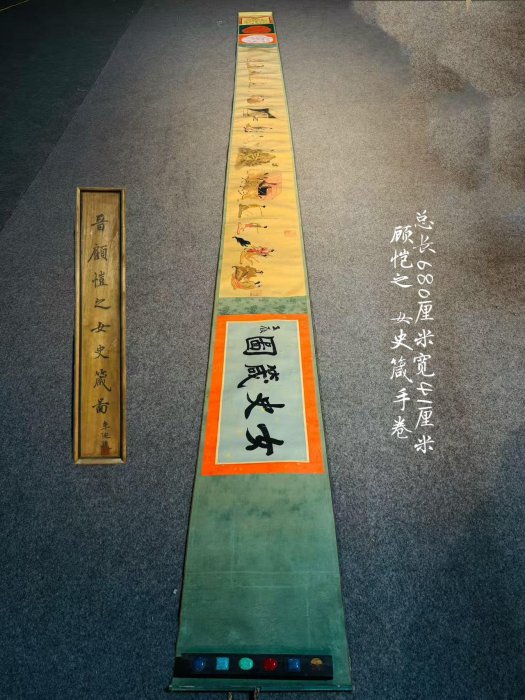 晋顾恺之女史箴图
女史箴圖
总长680厘米宽41厘米
顾恺之 女史箴手卷